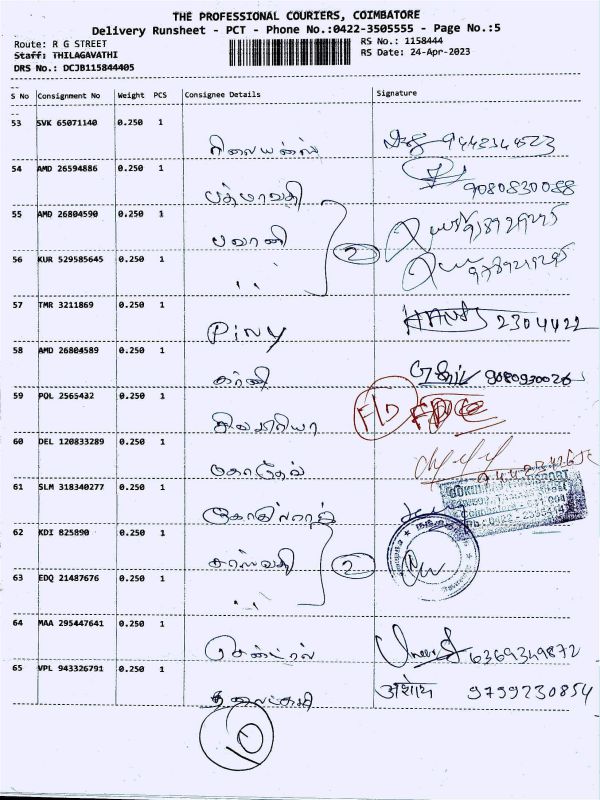 THE PROFESSIONAL COURIERS, COIMBATORE
Delivery Runsheet - PCT - Phone No.:0422-3505555 - Page No.:5
Route: R G STREET
RS No.: 1158444
Staff: THILAGAVATHI
RS Date: 24-Apr-2023
DRS No.: DCJB115844405
S No Consignment No Weight PCS Consignee Details Signature
53 SVK 65071140 0.250 1
ரிலையன்ஸ்
54 AMD 26594886 0.250 1
பத்மாவதி 9080830088
55 AMD 26804590 0.250 1
பவானி
2
56 KUR 529585645 0.250 1
,,
57 TMR 3211869 0.250 1
Piny 2304422
58 AMD 26804589 0.250 1
59 POL 2565432 0.250 1
F/D
60 DEL 120833289 0.250 1
61 SLM 318340277 0.250 1
62 KDI 825890 0.250 1
2
63 EDQ 21487676 0.250 1
,,
64 MAA 295447641 0.250 1
சென்ட்ரல் 6369349872
65 VPL 943326791 0.250 1
9799230854
10